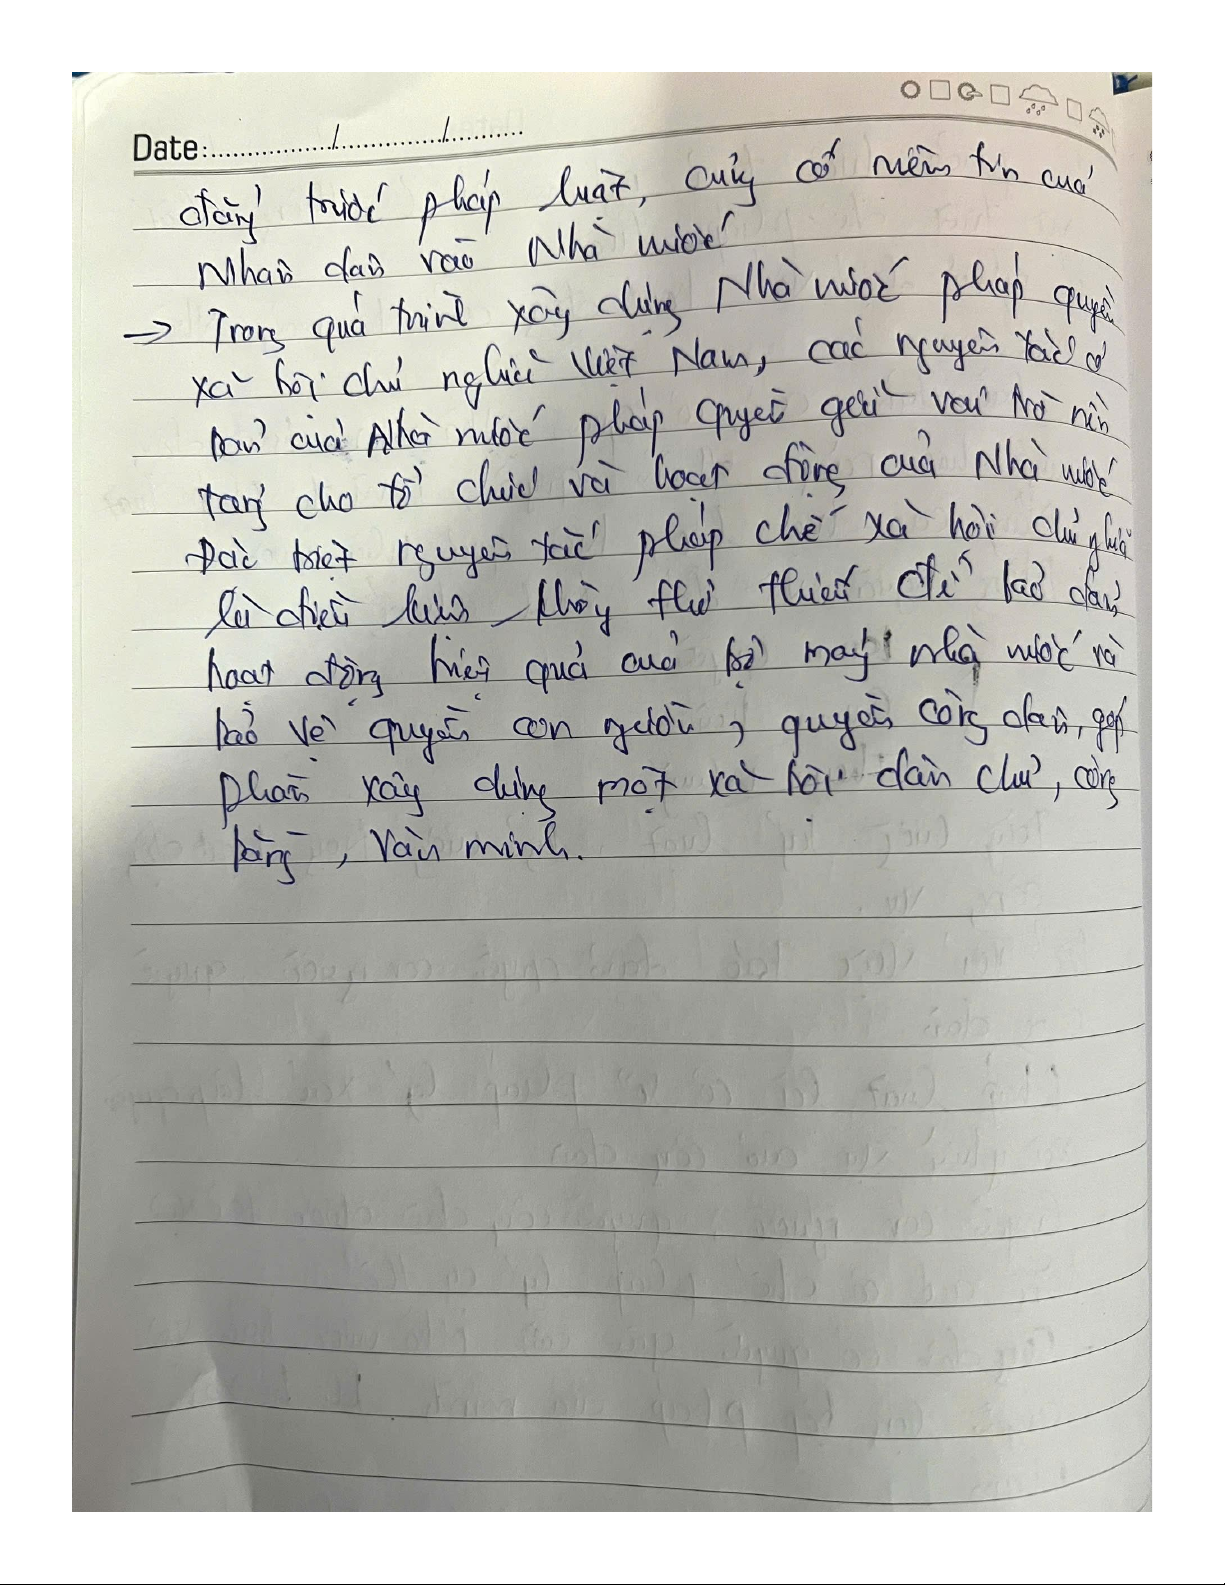 Date:............/............/............
đẳng trước pháp luật, củng cố niềm tin của
Nhân dân vào Nhà nước
→ Trong quá trình xây dựng Nhà nước pháp quyền
xã hội chủ nghĩa Việt Nam, các nguyên tắc cơ
bản của Nhà nước pháp quyền giữ vai trò nền
tảng cho tổ chức và hoạt động của Nhà nước
Đặc biệt nguyên tắc pháp chế xã hội chủ nghĩa
là điều kiện không thể thiếu để bảo đảm
hoạt động hiệu quả của bộ máy nhà nước và
bảo vệ quyền con người, quyền công dân, góp
phần xây dựng một xã hội dân chủ, công
bằng, văn minh.